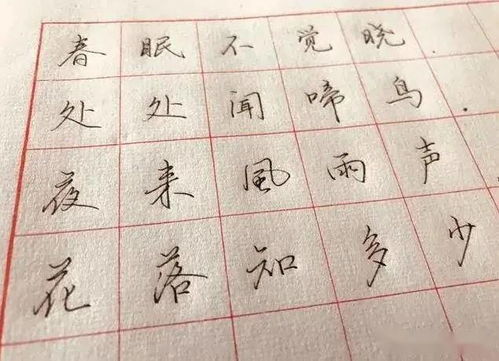 春眠不觉晓.
处处闻啼鸟.
夜来風雨声
花落知多少